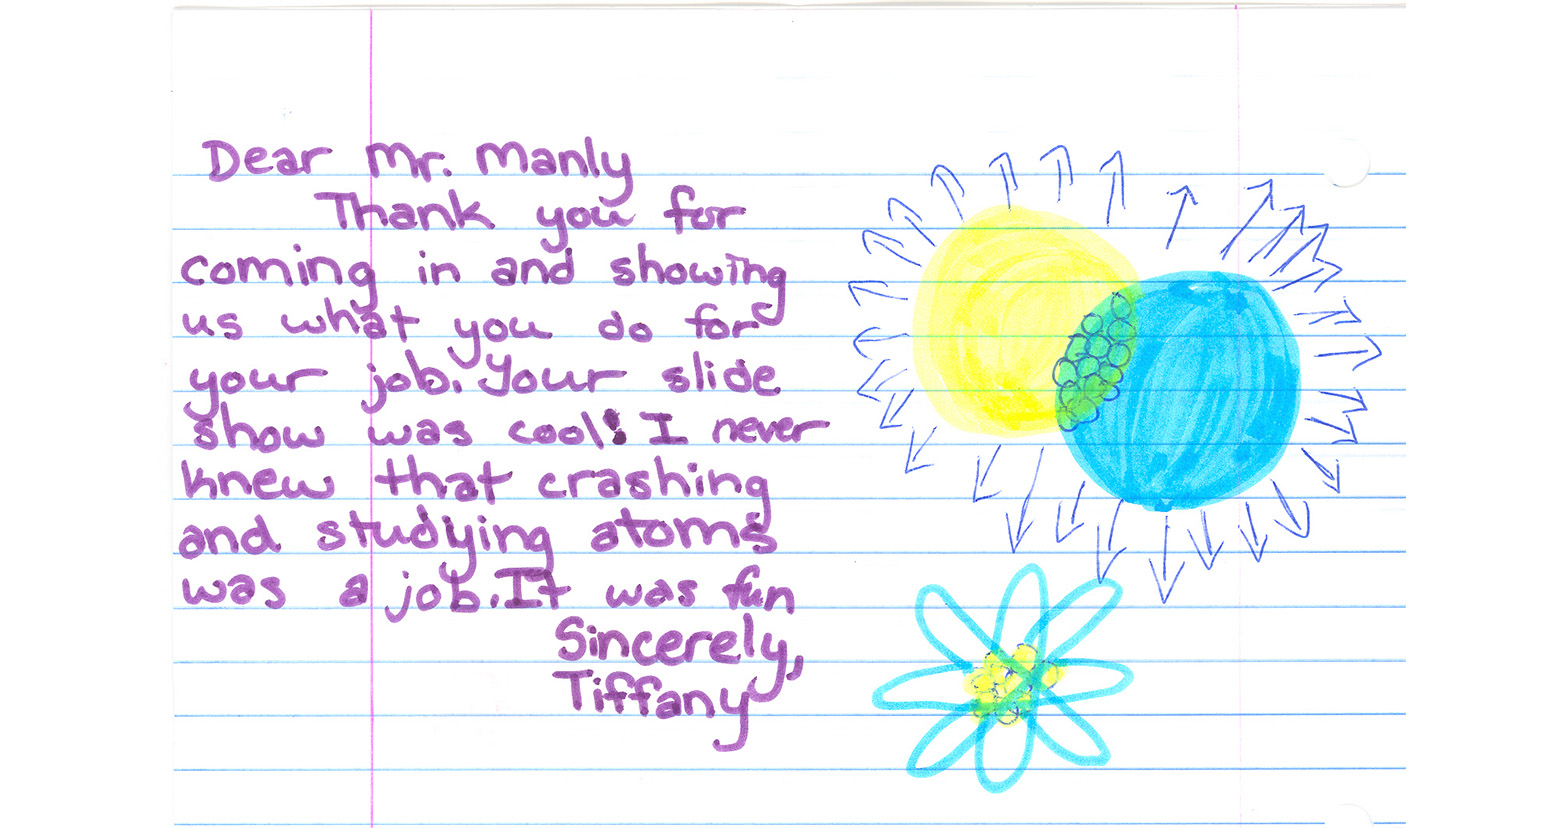 Dear Mr. Manly
Thank you for
coming in and showing
us what you do for
your job. Your slide
show was cool! I never
knew that crashing
and studying atoms
was a job. It was fun
Sincerely,
Tiffany